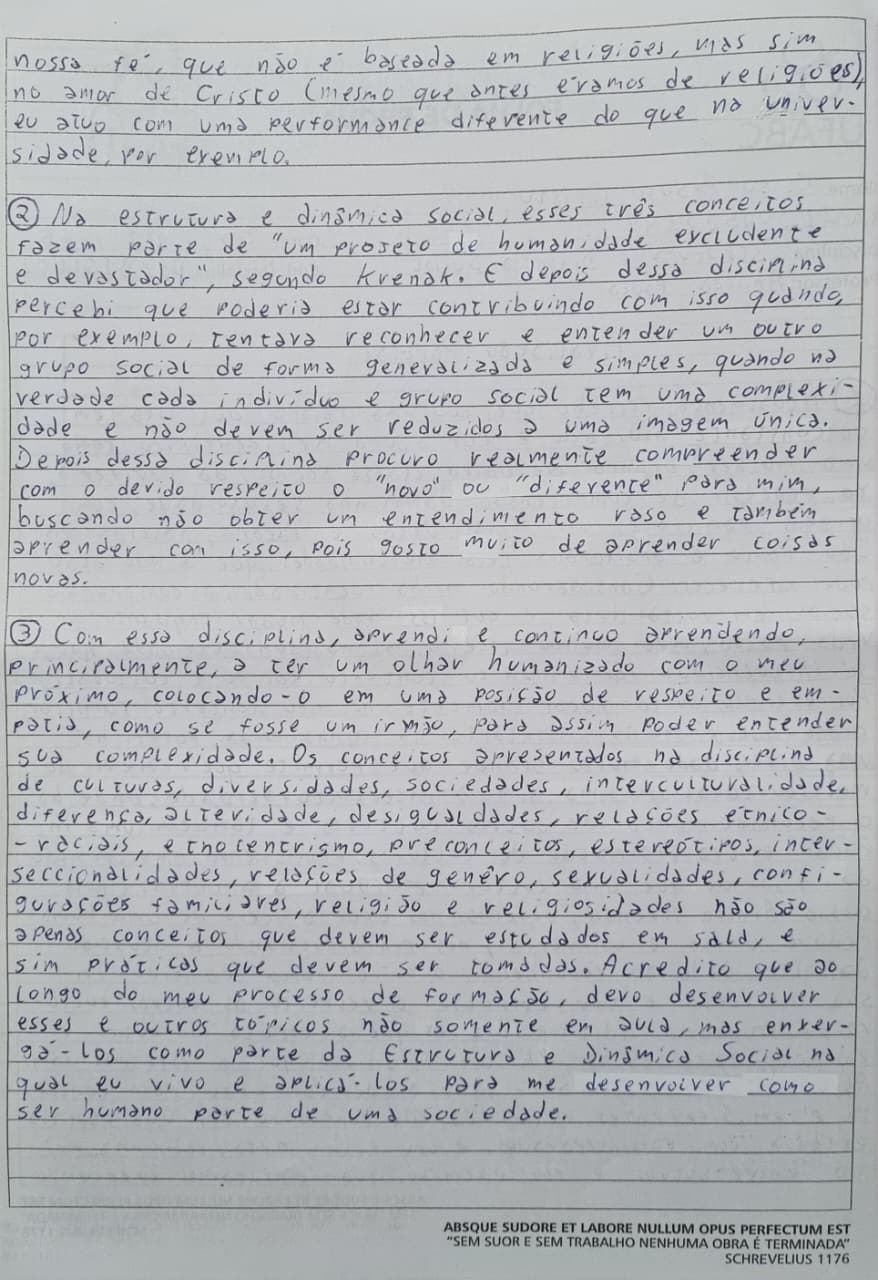 nossa fé, que não é baseada em religiões, mas sim
no amor de Cristo (mesmo que antes éramos de religiões),
eu atuo com uma performance diferente do que na univer-
sidade, por exemplo.
② Na estrutura e dinâmica social, esses três conceitos
fazem parte de "um projeto de humanidade excludente
e devastador", segundo Krenak. E depois dessa disciplina
percebi que poderia estar contribuindo com isso quando,
por exemplo, tentava reconhecer e entender um outro
grupo social de forma generalizada e simples, quando na
verdade cada indivíduo e grupo social tem uma complexi-
dade e não devem ser reduzidos a uma imagem única.
Depois dessa disciplina procuro realmente compreender
com o devido respeito o "novo" ou "diferente" para mim,
buscando não obter um entendimento raso e também
aprender com isso, pois gosto muito de aprender coisas
novas.
③ Com essa disciplina, aprendi e continuo aprendendo,
principalmente, a ter um olhar humanizado com o meu
próximo, colocando-o em uma posição de respeito e em-
patia, como se fosse um irmão, para assim poder entender
sua complexidade. Os conceitos apresentados na disciplina
de culturas, diversidades, sociedades, interculturalidade,
diferença, alteridade, desigualdades, relações étnico-
-raciais, etnocentrismo, preconceitos, estereótipos, inter-
seccionalidades, relações de genêro, sexualidades, confi-
gurações familiares, religião e religiosidades não são
apenas conceitos que devem ser estudados em sala, e
sim práticas que devem ser tomadas. Acredito que ao
longo do meu processo de formação, devo desenvolver
esses e outros tópicos não somente em aula, mas enxer-
gá-los como parte da Estrutura e Dinâmica Social na
qual eu vivo e aplicá-los para me desenvolver como
ser humano parte de uma sociedade.
ABSQUE SUDORE ET LABORE NULLUM OPUS PERFECTUM EST
"SEM SUOR E SEM TRABALHO NENHUMA OBRA É TERMINADA"
SCHREVELIUS 1176